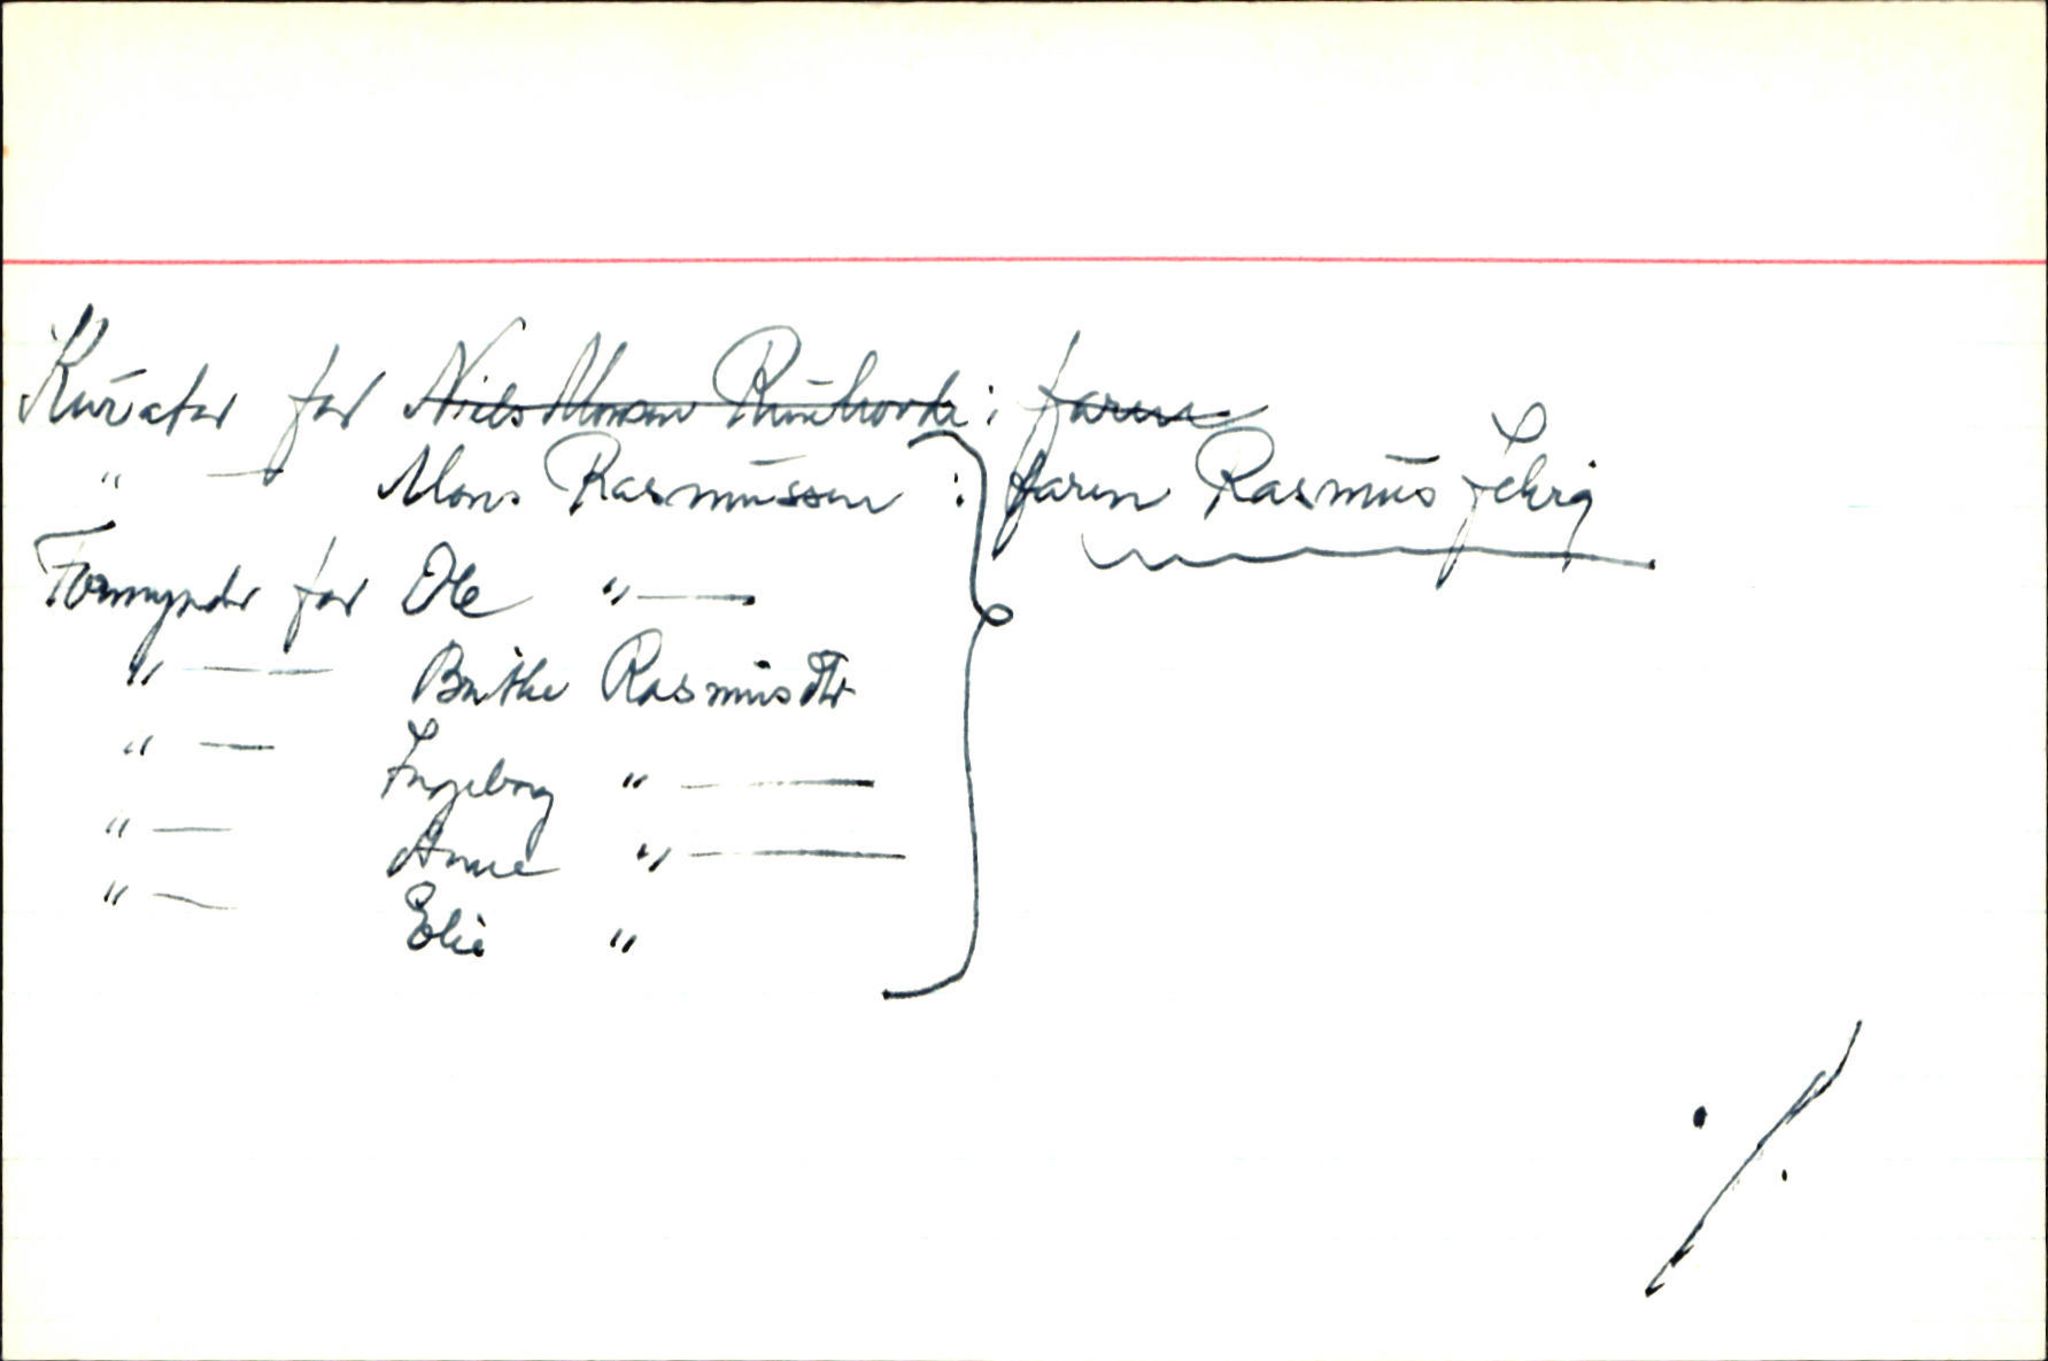 Kurator for ~~Niels Monsen~~ : ~~faren~~
" — Mons Rasmussen : faren Rasmus
Formynder for Ole " —
" — Brithe Rasmusdtr
" — Ingeborg " —
" — Anne " —
" — Eli "
·/.